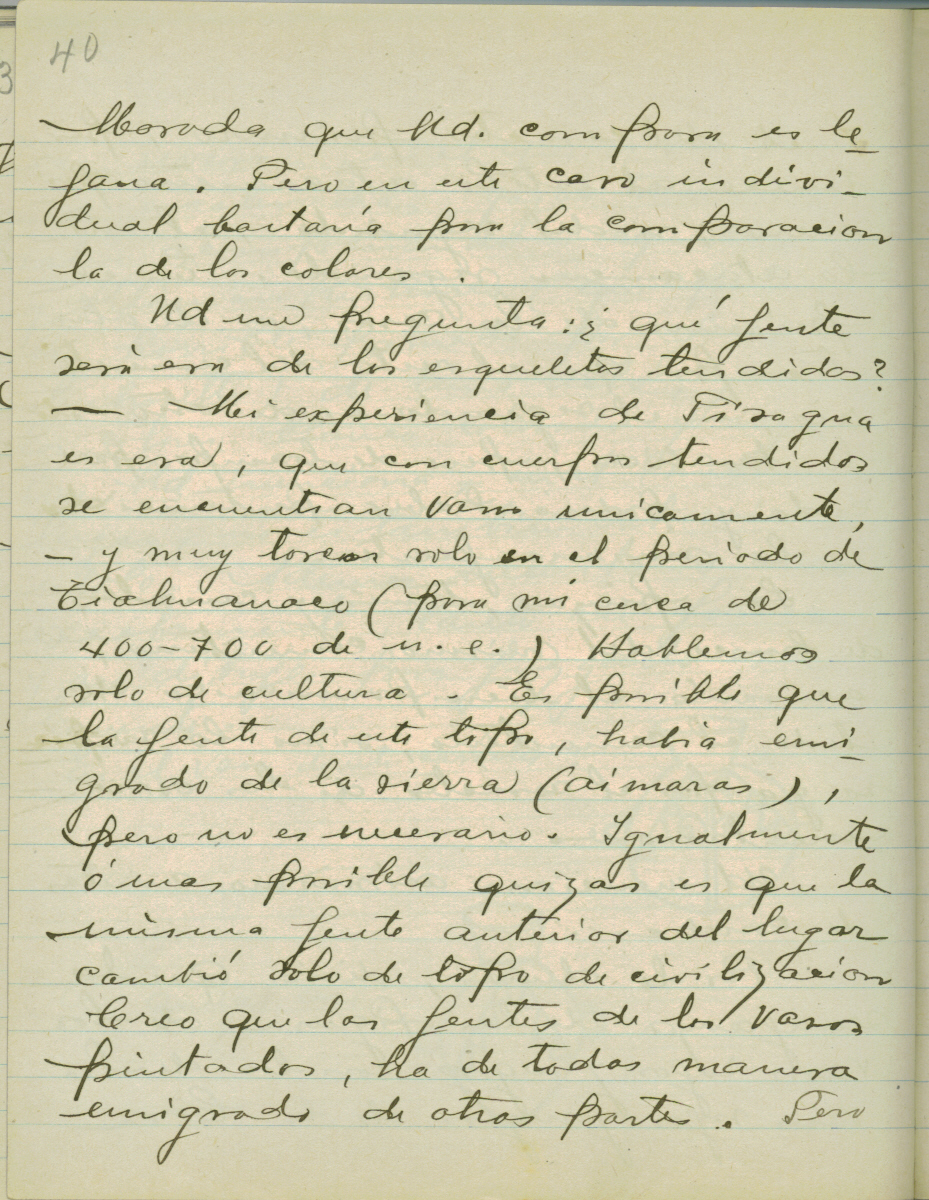 40
Morada que Ud. compara es le
jana. Pero en este caso indivi-
dual bastaría para la comparacion
la de los colores.
Ud me pregunta: ¿qué gente
será esa de los esqueletos tendidos?
— Mi experiencia de Pisagua
es esa, que con cuerpos tendidos
se encuentran vasos unicamente,
– y muy toscos solo en el periodo de
Tiahuanaco (para mi cerca de
400-700 de n. e.) Hablemos
solo de cultura. Es posible que
la gente de este tipo, habia emi
grado de la sierra (aimaras),
pero no es necesario. Igualmente
ó mas posible quizas es que la
misma gente anterior del lugar
cambió solo de tipo de civilizacion
Creo que las gentes de los vasos
pintados, ha de todas manera
emigrado de otras partes. Pero